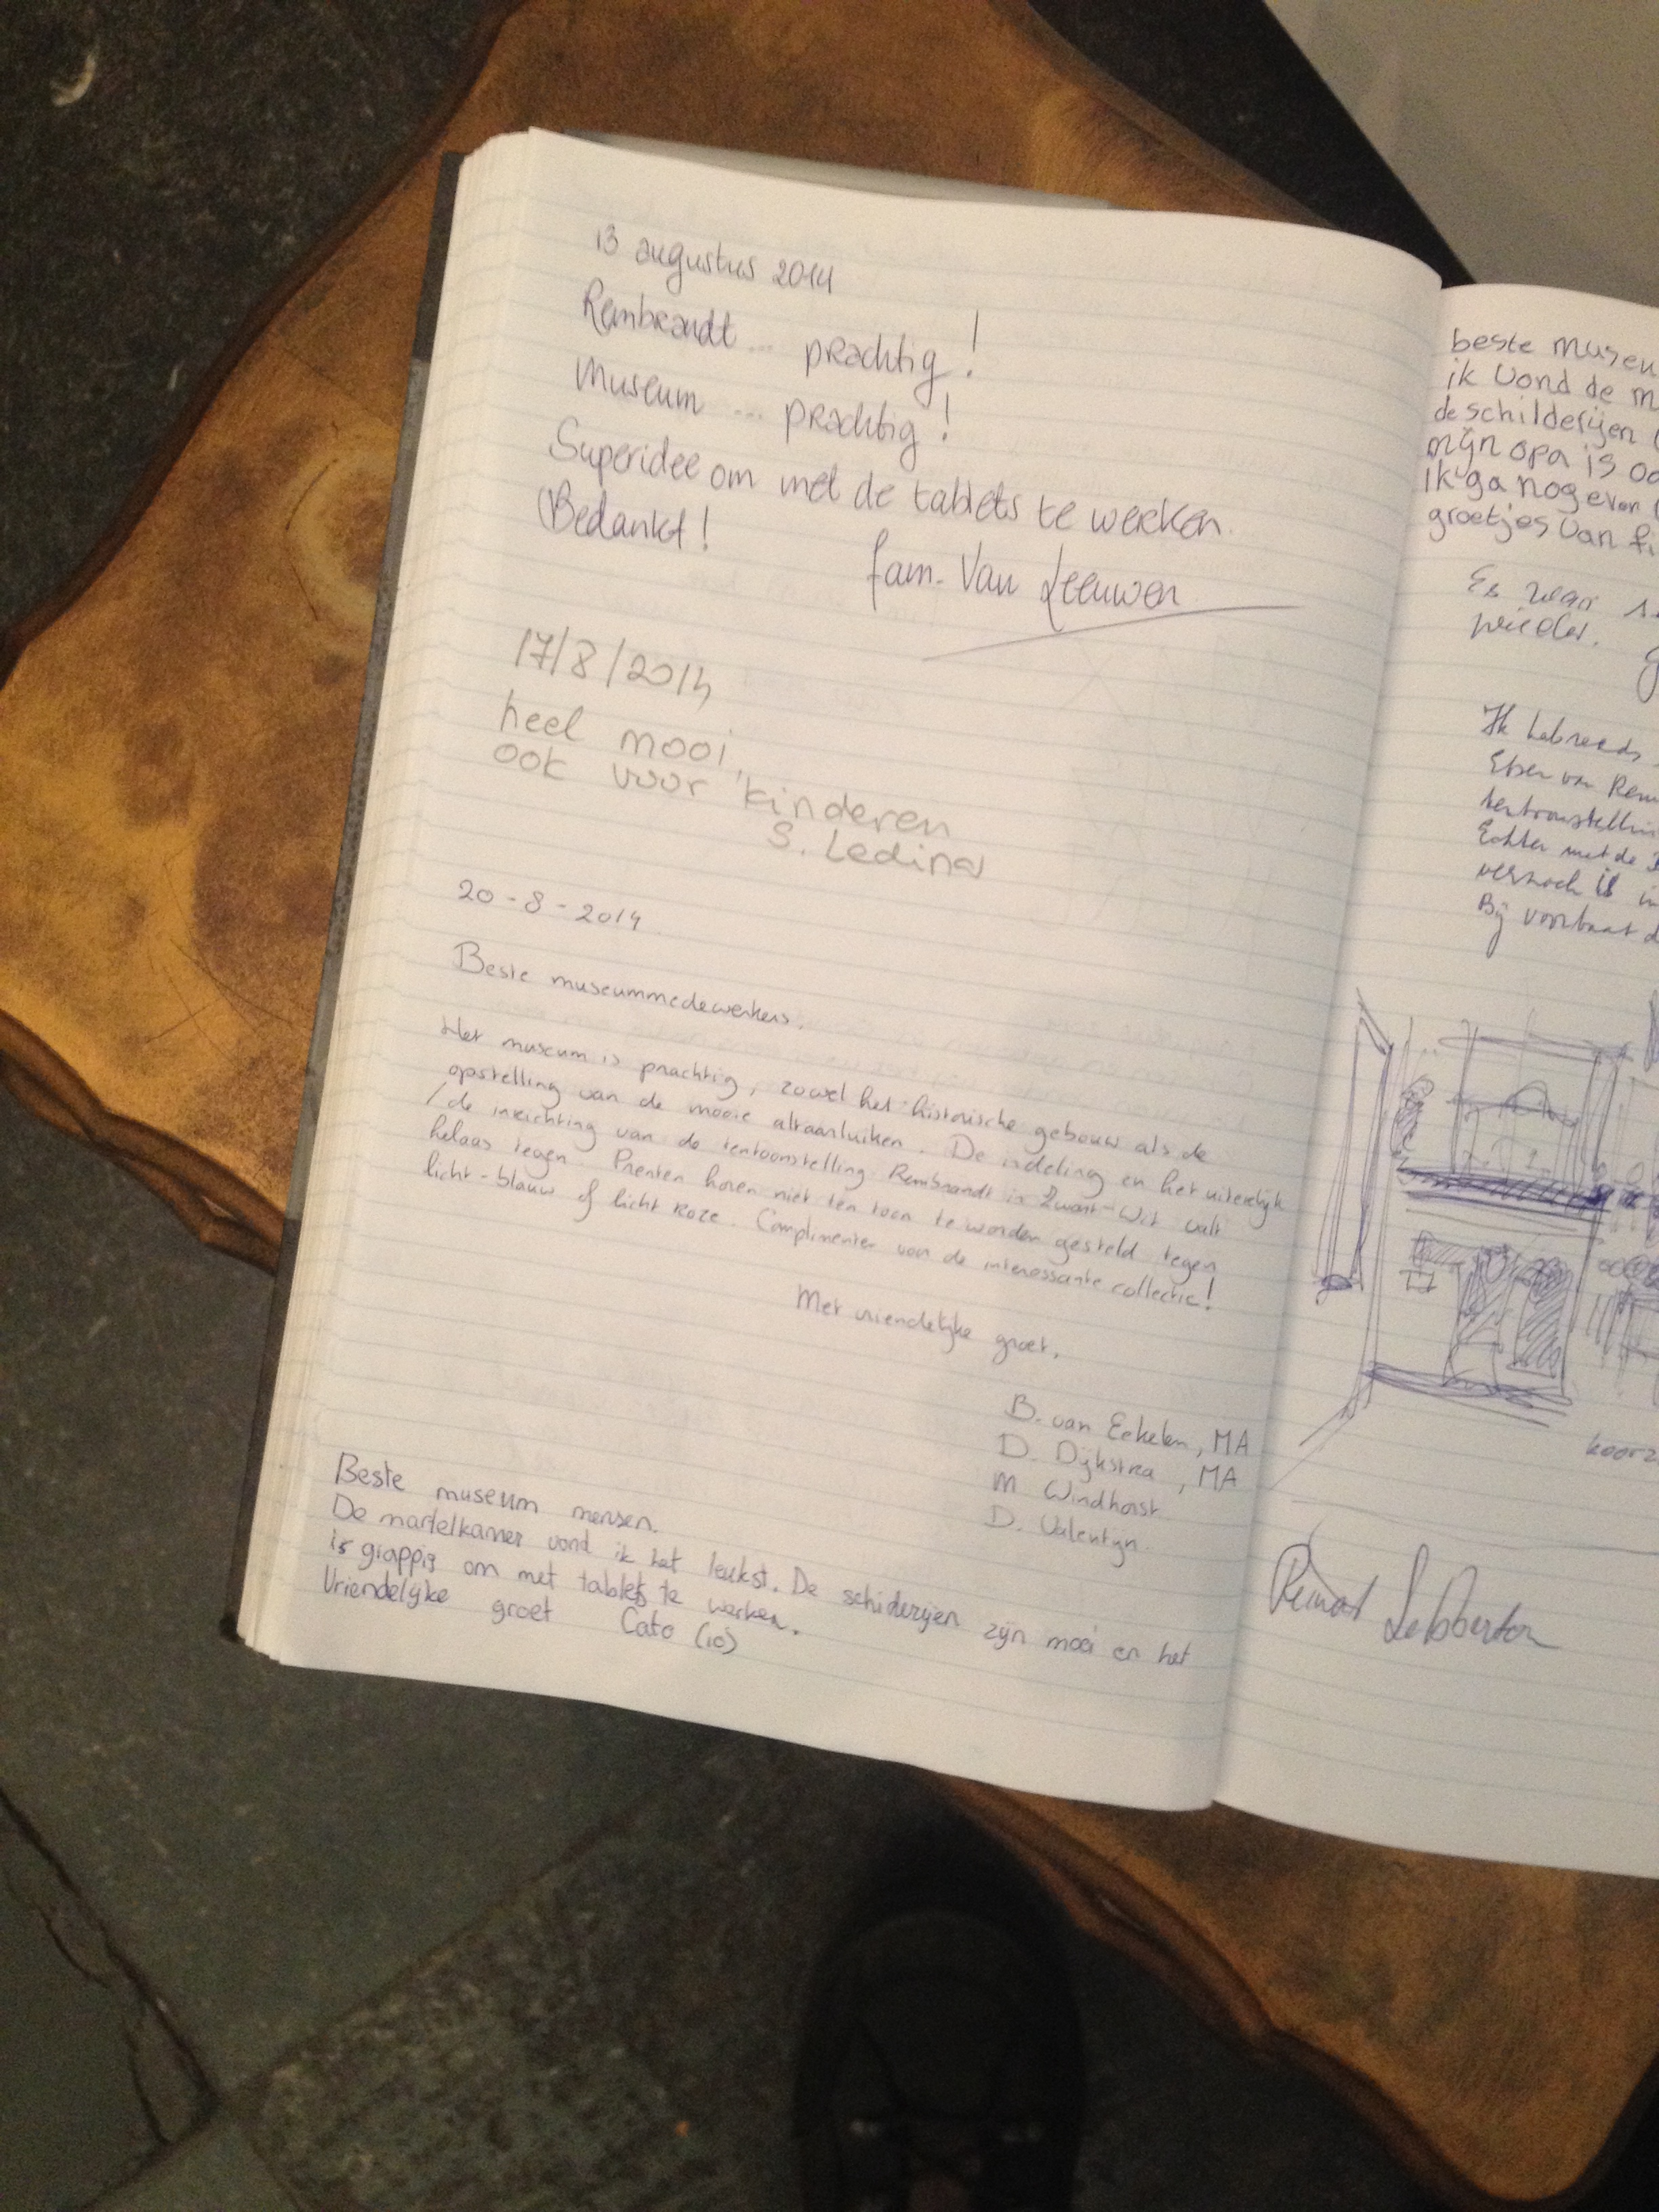 13 augustus 2014
Rembrandt ... prachtig!
Museum ... prachtig!
Superidee om met de tablets te werken.
Bedankt!
fam. Van Leeuwen
17/8/2014
heel mooi,
ook voor kinderen
S. Ledina
20-8-2014.
Beste museummedewerkers,
Het museum is prachtig, zowel het historische gebouw als de
opstelling van de mooie altaarluiken. De indeling en het uiterlijk
/de inrichting van de tentoonstelling Rembrandt in Zwart-Wit valt
helaas tegen. Prenten horen niet ten toon te worden gesteld tegen
licht-blauw of licht roze. Complimenten van de interessante collectie!
Met vriendelijke groet,
B. van Eekelen, MA
D. Dijkstra, MA
M Windhorst
D. Valentyn.
Beste museum mensen.
De martelkamer vond ik het leukst. De schiderijen zijn mooi en het
is grappig om met tablets te werken.
Vriendelijke groet Cato (10)
beste museu
ik vond de m
de schilderijen
mijn opa is oo
ik ga nog even
groetjes van fi
Es war
wieder.
Ik heb reeds
Etsen van Rem
tentoonstellin
Echter met de
verzoek is in
Bij voorbaat d
koorz